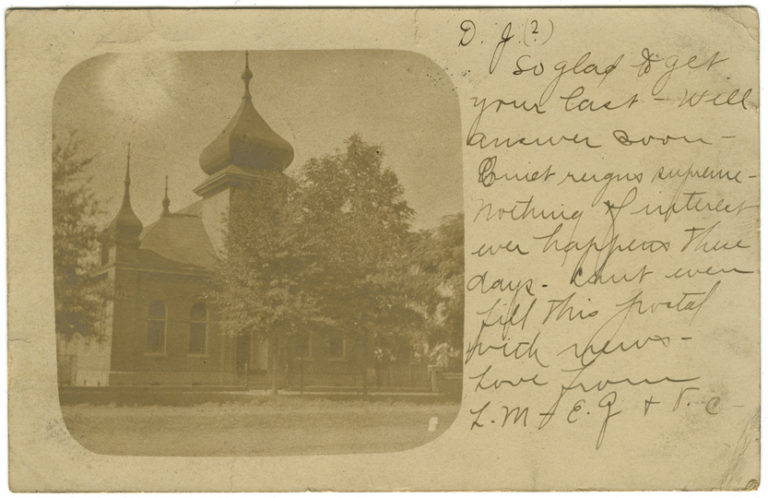 D. J. (?)
So glad to get
your last - Will
answer soon -
Quiet reigns supreme -
Nothing of interest
ever happens these
days - Can't even
fill this postal
with news -
Love from
L. M + E. J + V. C